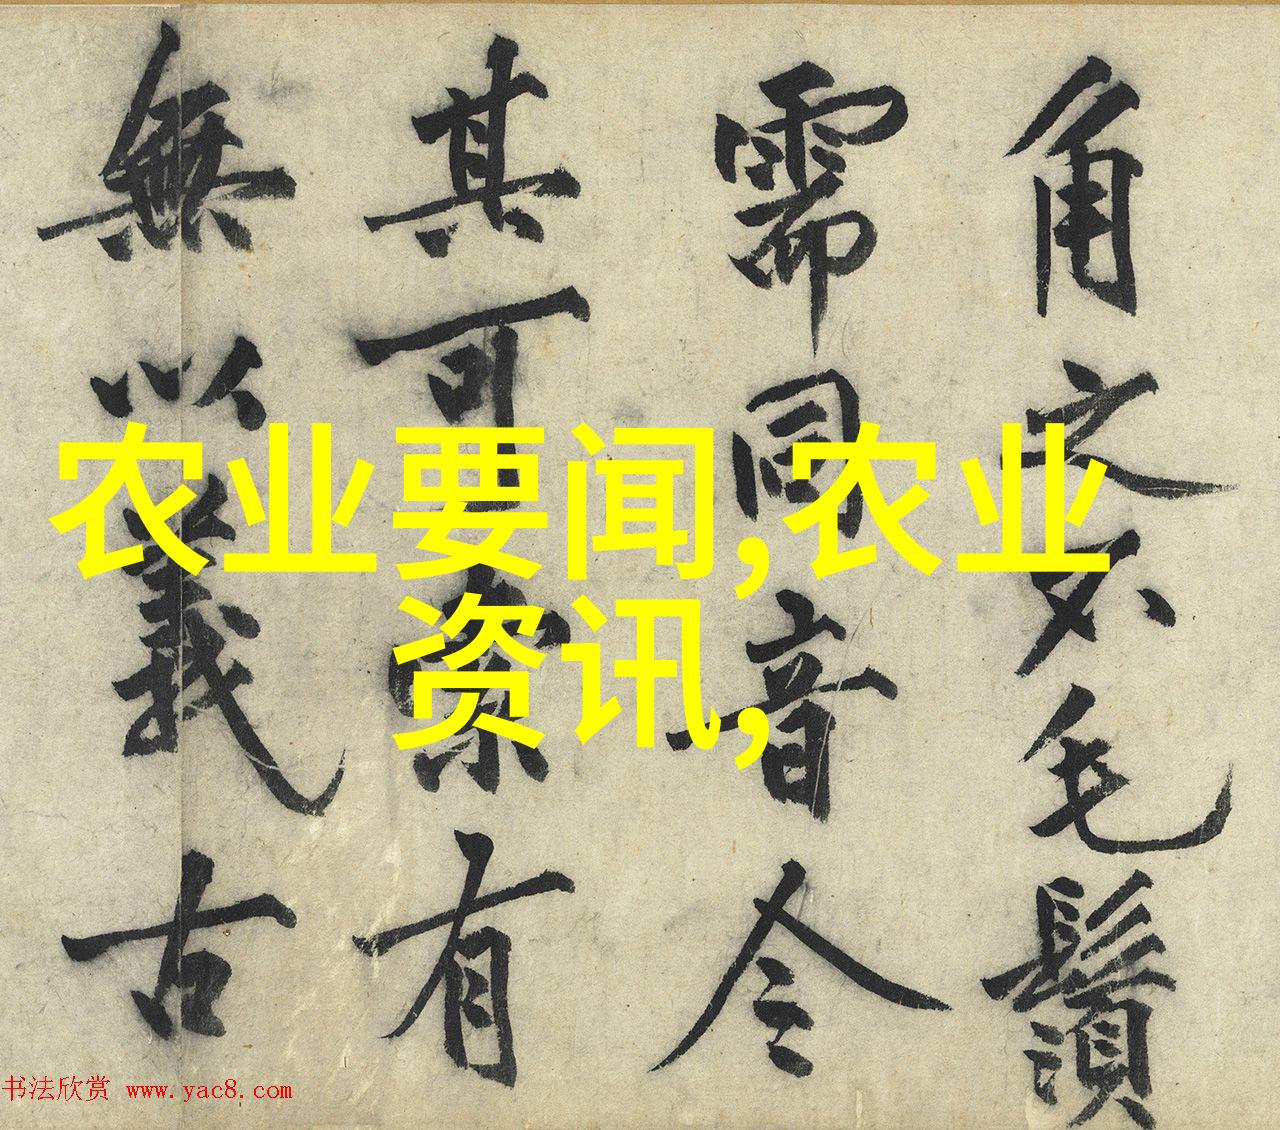 角文不毛鬚
需同音今
其可索有
無以義古
农业要闻,农业
资讯,
书法欣赏 www.yac8.com